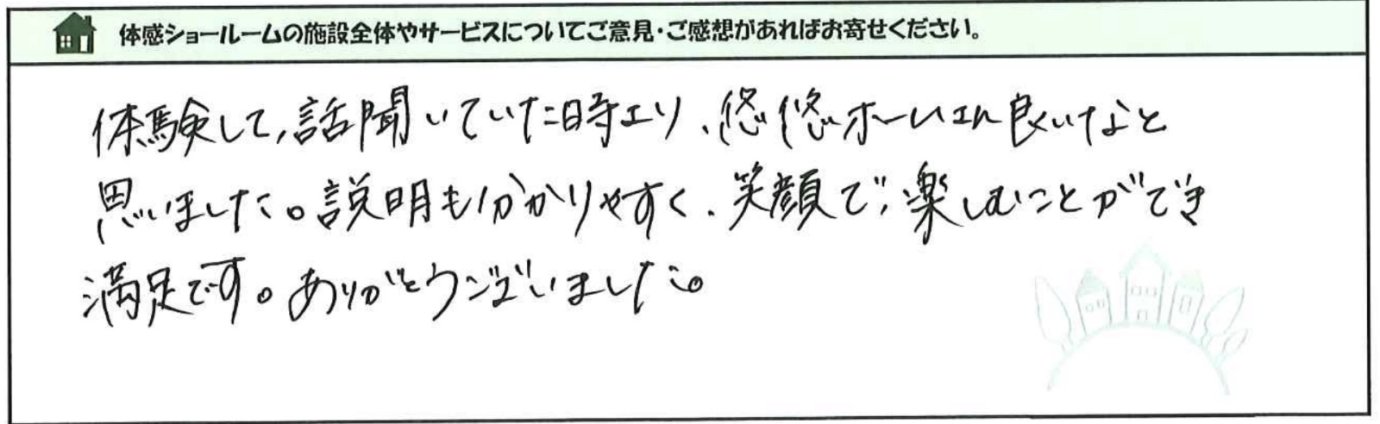 体感ショールームの施設全体やサービスについてご意見・ご感想があればお寄せください。
体験して、話聞いていた時より、悠悠ホームさん良いなと
思いました。説明も分かりやすく、笑顔で、楽しむことができ
満足です。ありがとうございました。